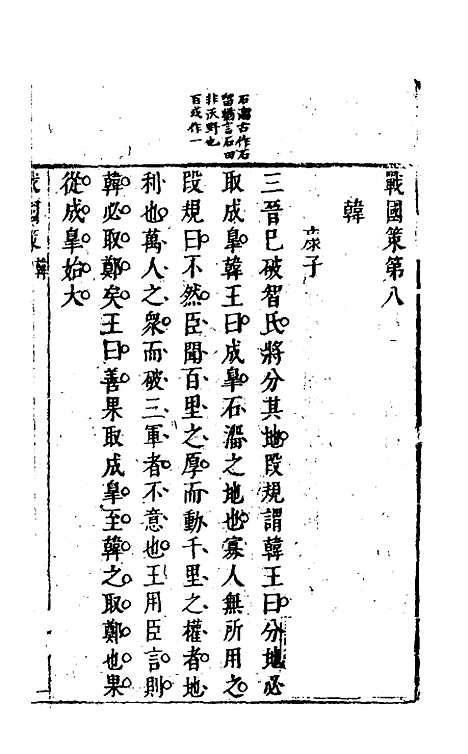 石溜古作石
留鮑言石田
非沃野也
百或作一
戰國策第八
韓
康子
三晉已破智氏將分其地段規謂韓王曰分地必
取成臯韓王曰成臯石溜之地也寡人無所用之
段規曰不然臣聞百里之厚而動千里之權者地
利也萬人之衆而破三軍者不意也王用臣言則
韓必取鄭矣王曰善果取成臯至韓之取鄭也果
從成臯始大
戰國策 韓